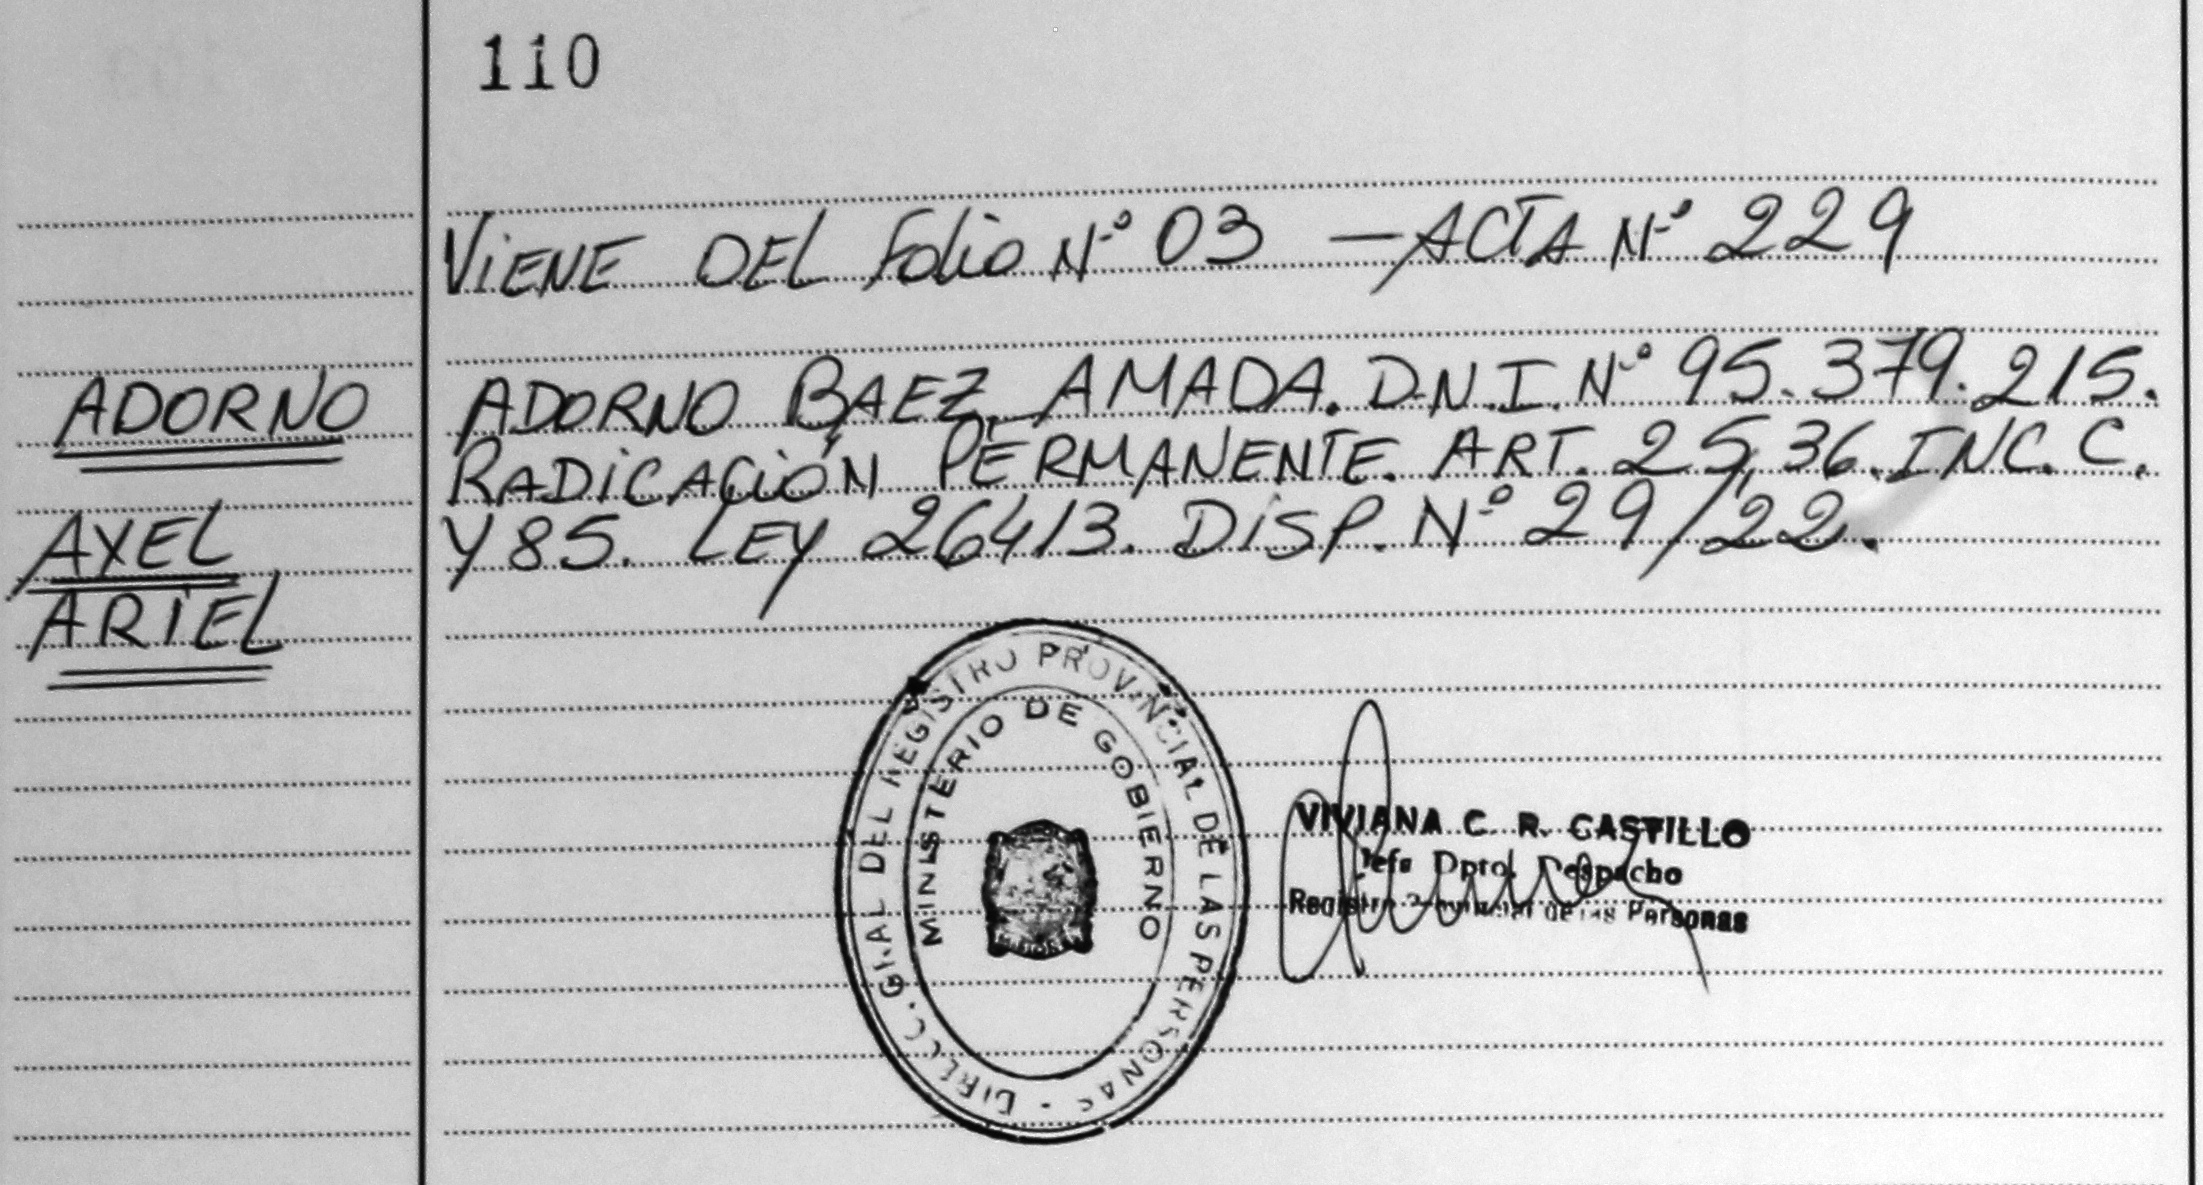 110
VIENE DEL FOLIO Nº 03 — ACTA Nº 229
ADORNO
ADORNO BAEZ, AMADA. D.N.I. Nº 95.379.215.
RADICACIÓN PERMANENTE. ART. 25, 36. INC. C.
AXEL
Y 85. LEY 26413. DISP. Nº 29/22.
ARIEL
DIRECC. GRAL DEL REGISTRO PROVINCIAL DE LAS PERSONAS -
MINISTERIO DE GOBIERNO
VIVIANA C. R. CASTILLO
Jefa Dpto. Despacho
Registro Provincial de las Personas